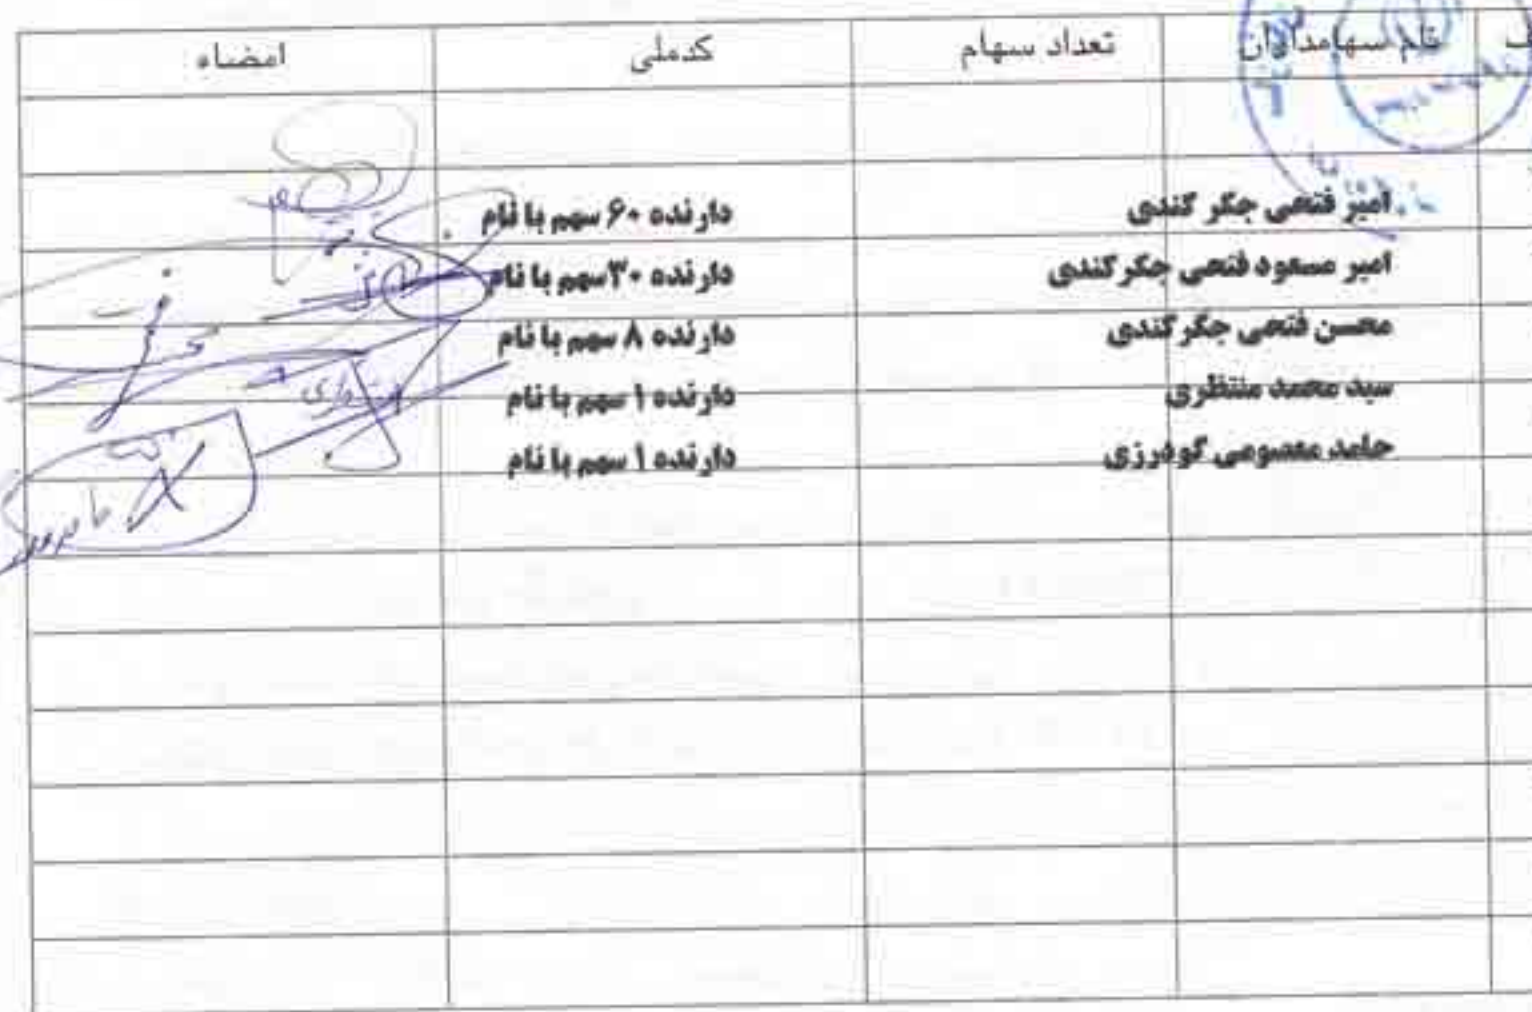 نام سهامداران تعداد سهام کدملی امضاء
امیر فتحی جگر کندی دارنده ۶۰ سهم با نام
امیر مسعود فتحی جگر کندی دارنده ۳۰ سهم با نام
محسن فتحی جگر کندی دارنده ۸ سهم با نام
سید محمد منتظری دارنده ۱ سهم با نام
حامد معصومی گودرزی دارنده ۱ سهم با نام